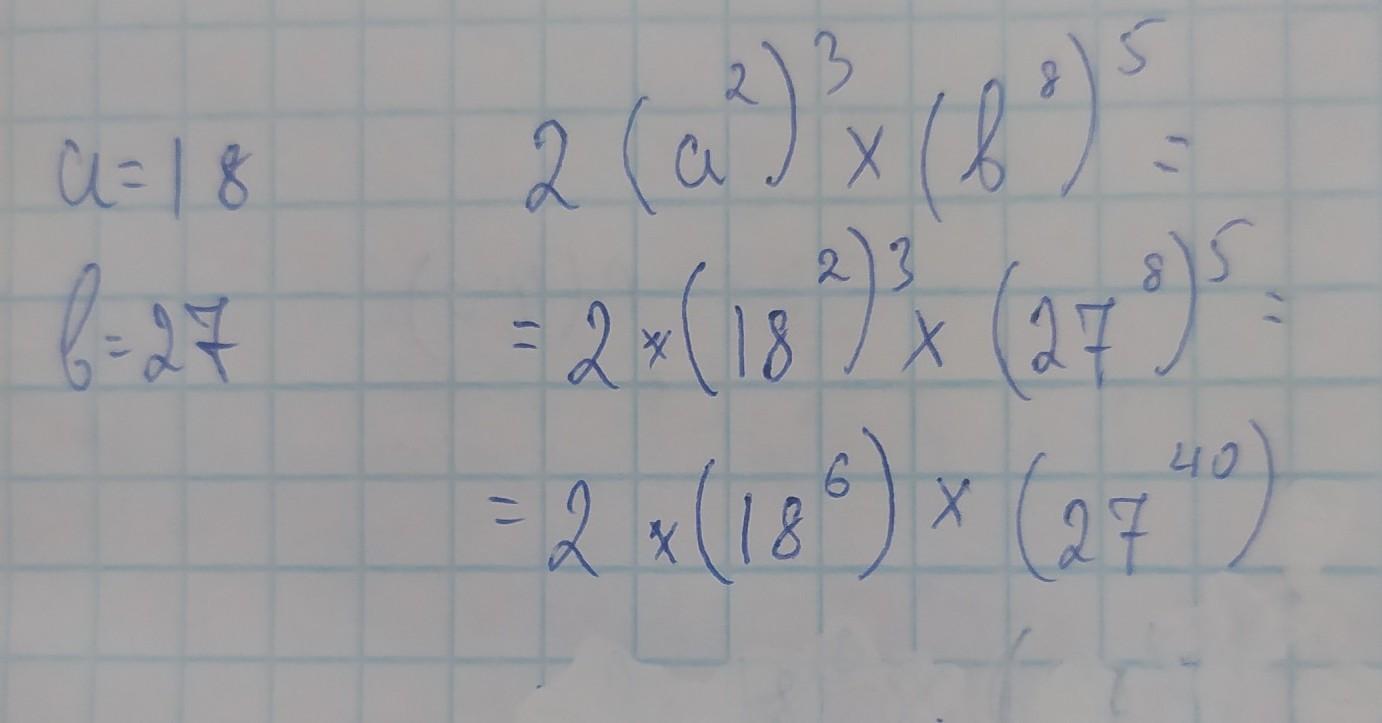 a=18
b=27
2(a²)³×(b⁸)⁵=
=2×(18²)³×(27⁸)⁵=
=2×(18⁶)×(27⁴⁰)